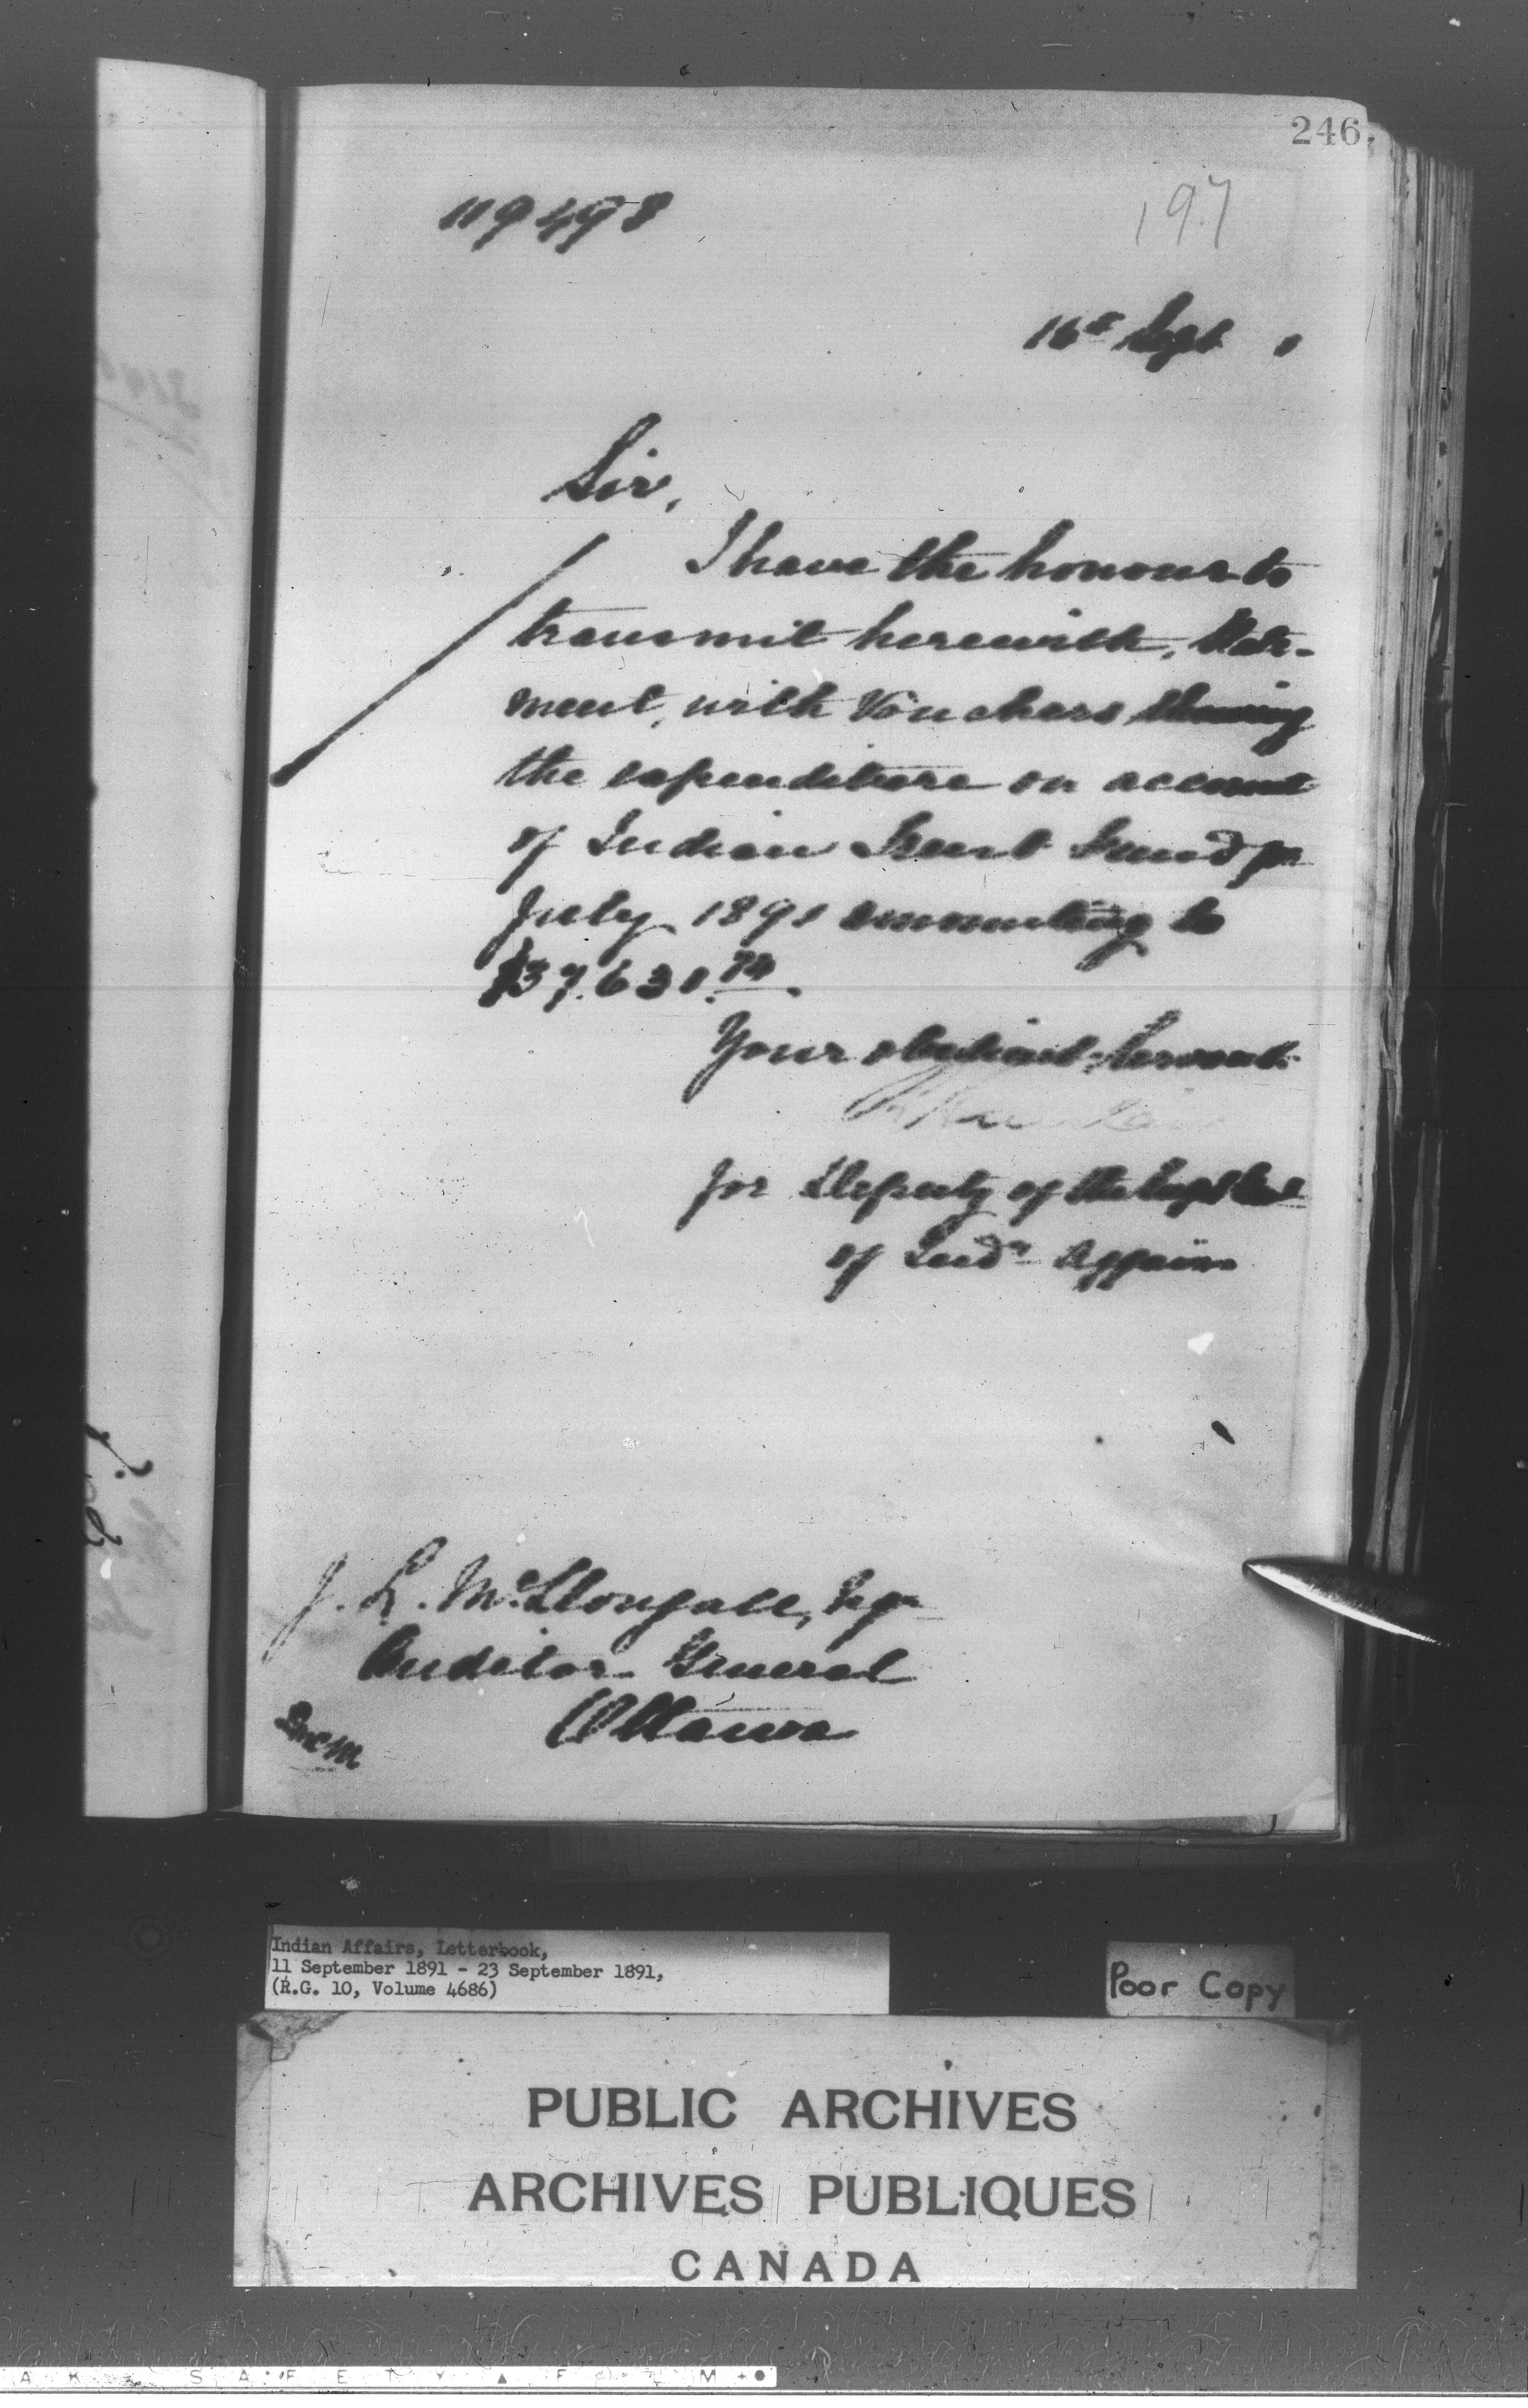 246.
119498
197
16th Sept 1
Sir,
I have the honour to
transmit herewith, State-
ment, with Vouchers showing
the expenditure on account
of Indian Trust Fund for
July 1891 amounting to
$37.630.74
Your obedient Servant
for Deputy of the Supt Genl
of Indn Affairs
J. L. McDougall, Esqr
Auditor General
Ottawa
Indian Affairs, Letterbook,
11 September 1891 - 23 September 1891,
(R.G. 10, Volume 4686)
Poor Copy
PUBLIC ARCHIVES
ARCHIVES PUBLIQUES
CANADA
SAFETY FILM